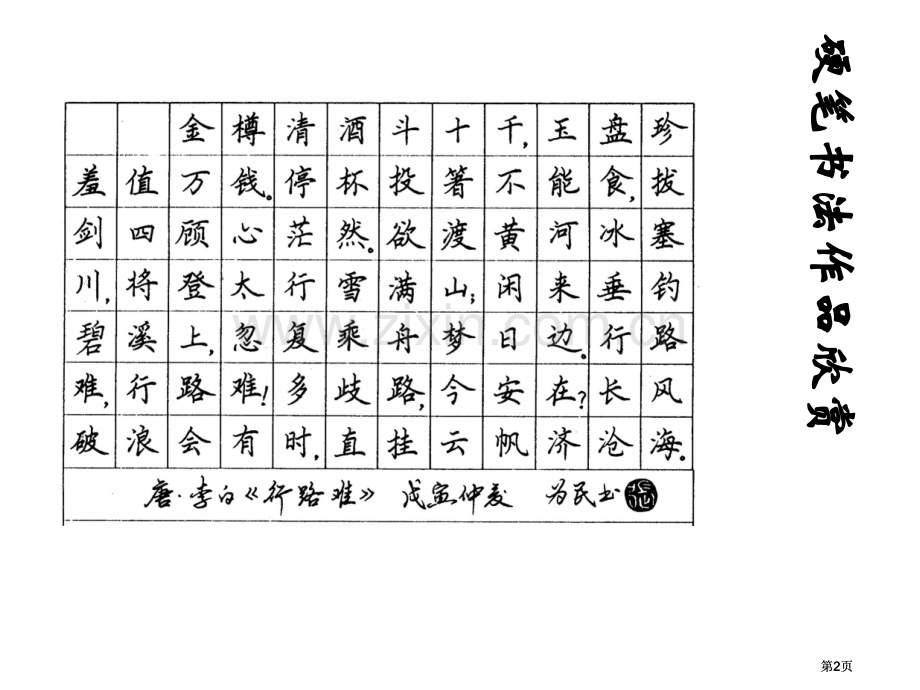 硬笔书法作品欣赏
金樽清酒斗十千,玉盘珍
羞值万钱。停杯投箸不能食,拔
剑四顾心茫然。欲渡黄河冰塞
川,将登太行雪满山;闲来垂钓
碧溪上,忽复乘舟梦日边。行路
难,行路难!多歧路,今安在?长风
破浪会有时,直挂云帆济沧海。
唐·李白《行路难》 戊寅仲夏 为民书
www.zixin.com.cn
第2页